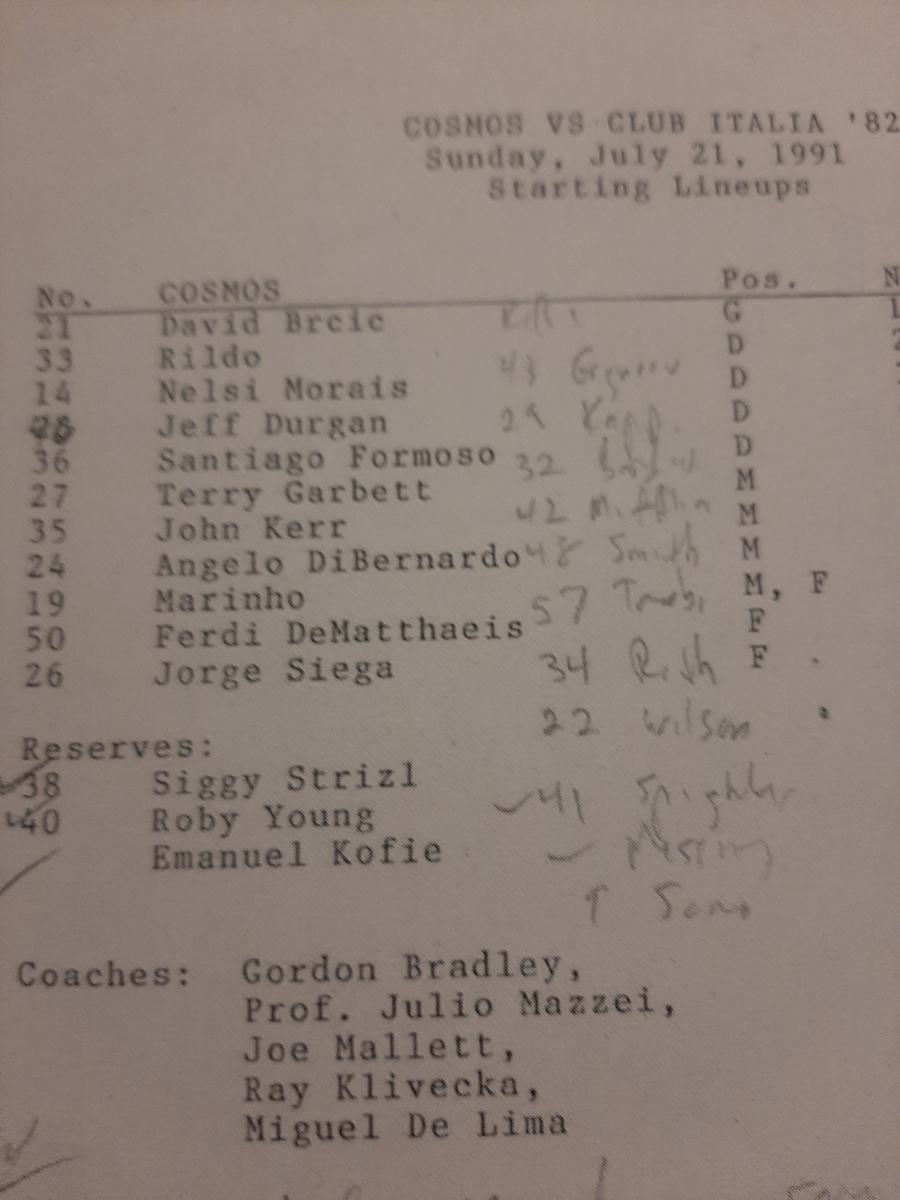 COSMOS VS CLUB ITALIA '82
Sunday, July 21, 1991
Starting Lineups
No. COSMOS Pos. N
21 David Brcic G
33 Rildo D
14 Nelsi Morais 43 D
Jeff Durgan 29 D
36 Santiago Formoso 32 D
27 Terry Garbett 42 M
35 John Kerr 48 Smith M
24 Angelo DiBernardo M
19 Marinho 57 M, F
50 Ferdi DeMatthaeis 34 F
26 Jorge Siega 22 Wilson F
Reserves:
38 Siggy Strizl 41
40 Roby Young
Emanuel Kofie
Coaches: Gordon Bradley,
Prof. Julio Mazzei,
Joe Mallett,
Ray Klivecka,
Miguel De Lima